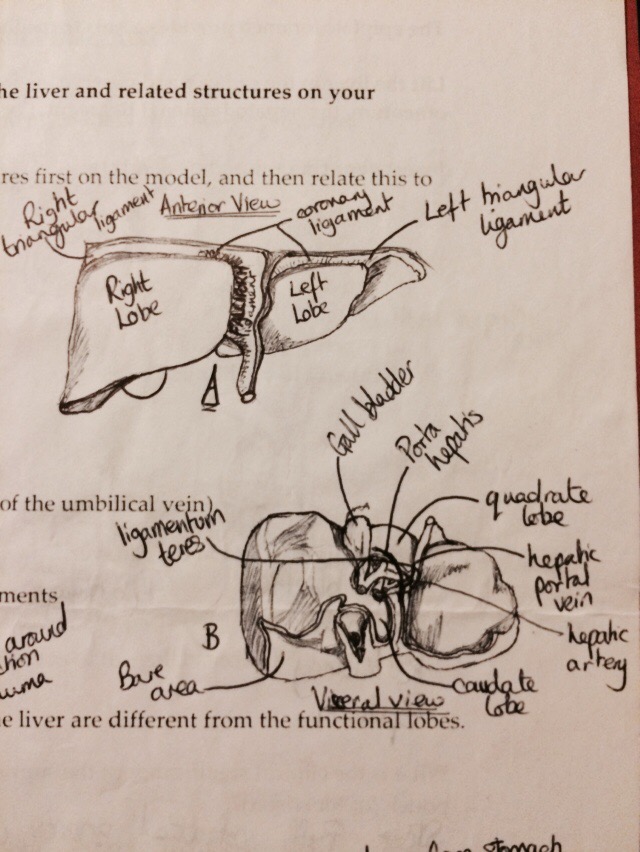 he liver and related structures on your
res first on the model, and then relate this to
Right
triangular
ligament
Anterior View
coronary
ligament
Left triangular
ligament
Right
Lobe
falciform
ligament
Left
Lobe
A
Gall bladder
Porta
hepatis
of the umbilical vein)
ligamentum
teres
quadrate
lobe
hepatic
portal
vein
ments
around
B
hepatic
artery
Bare
area
Visceral view
caudate
lobe
e liver are different from the functional lobes.
stomach